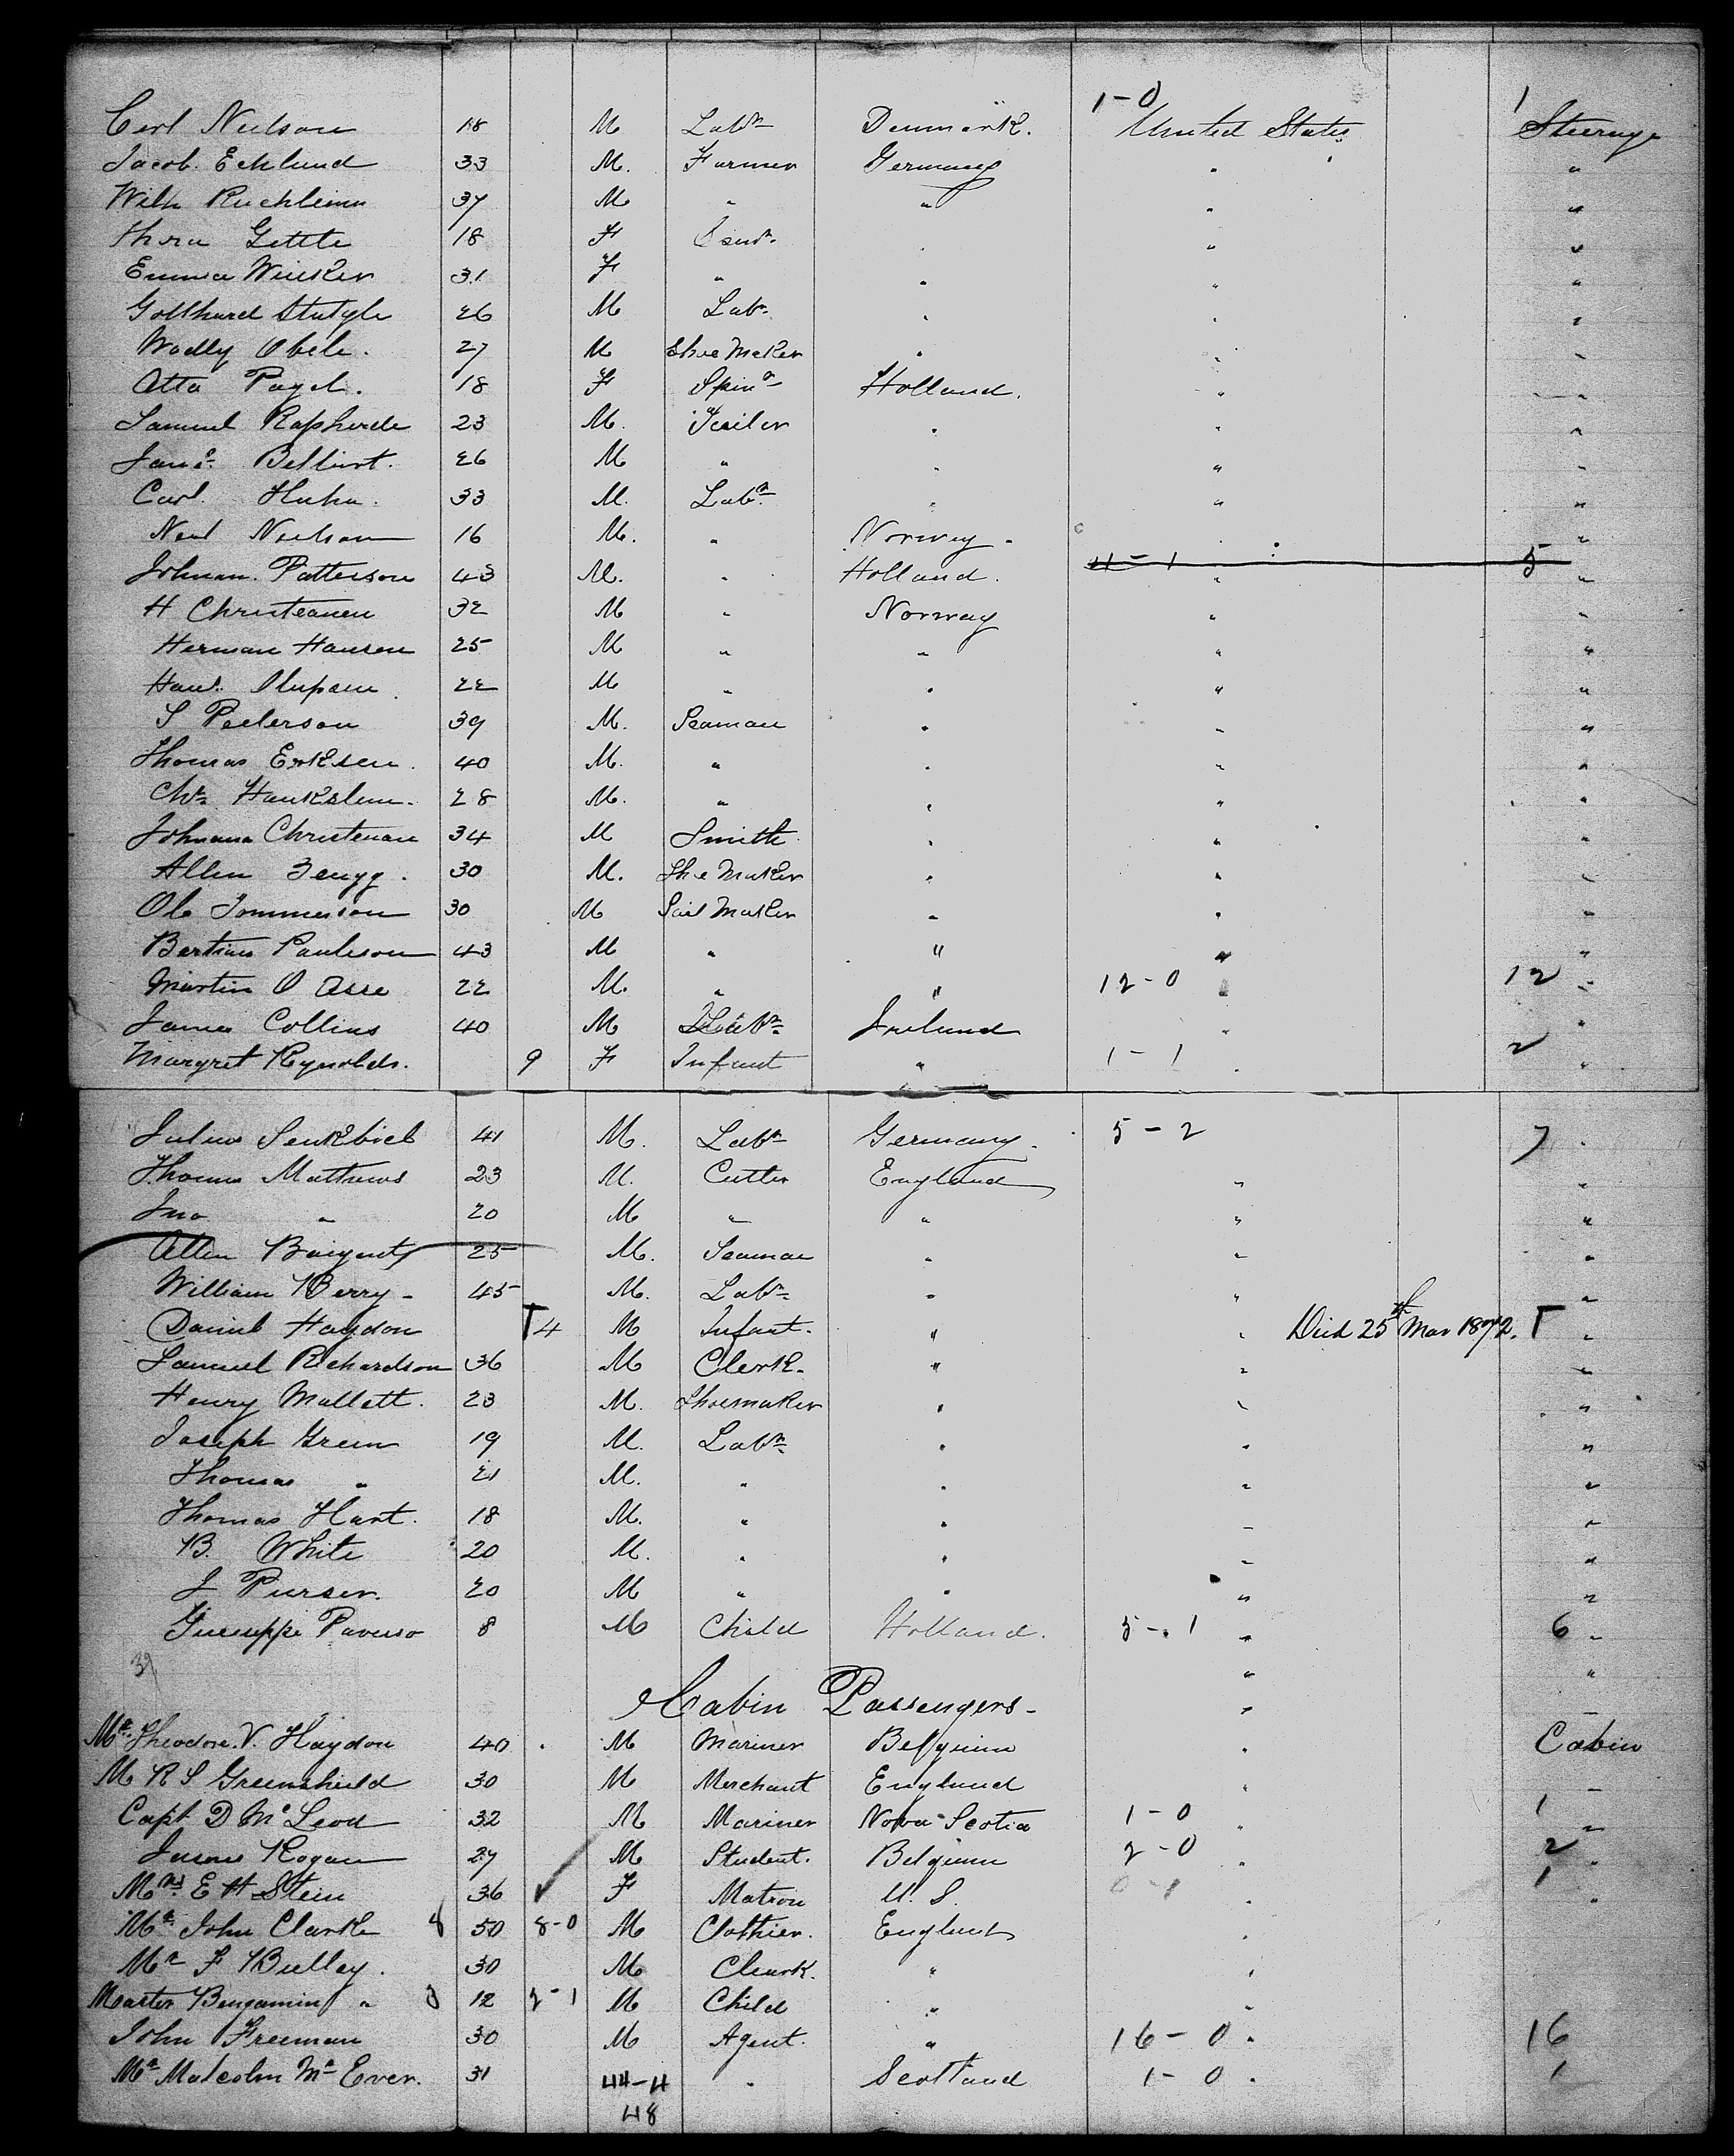 1-0 1
Carl Neilson 18 M Labr Denmark. United States Steerage
Jacob. Ecklund 33 M. Farmer Germany " "
Wilh 37 M " " " "
Gettle 18 F "
Emma Winker 31 F " " " "
26 M Labr " " "
Obele. 27 M Shoe Maker " " "
Otto Pagel. 18 F Spinr Holland. " "
Samuel 23 M. Tailor " " "
26 M " " " "
Carl Hahn. 33 M. Labr " " "
Neil Neilson 16 M. " Norway " "
4-1 5
Johnan. Patterson 43 M. " Holland. " "
H Christeanen 32 M " Norway " "
Herman Hansen 25 M " " " "
22 M " " " "
S Peeterson 39 M. Seaman " " "
Thomas Erksen. 40 M. " " " "
Chr. 28 M. " " " "
Johnana Christenan 34 M Smith " " "
Allen 30 M. Shoe Maker " " "
Ole Tommerson 30 M Sail Maker " " "
Paulson 43 M " " " "
Martin O Asse 22 M. " " 12-0 " 12 "
James Collins 40 M Labr Ireland " "
Margret Reynolds. 9 F Infant " 1-1 2 "
Julius 41 M. Labr Germany. 5-2 7
Thomas Matthews 23 M. Cutler England " "
Jno " 20 M " " " "
Allen 25 M. Seaman " " "
William Berry - 45 M. Labr " " "
Daniel Haydon T4 M Infant. " " Died 25th Mar 1872. T "
Samuel Richardson 36 M Clerk. " " "
Henry Mallett. 23 M. Shoemaker " " "
Joseph Green 19 M. Labr " " "
Thomas " 21 M. " " " "
Thomas Hart. 18 M. " " " "
B. White 20 M. " " " "
J Purser. 20 M " " " "
Giuseppe Paverso 8 M Child Holland. 5-1 " 6 "
39 " "
Cabin Passengers - "
Mr. Theodore. V. Haydon 40 M Mariner Belgium " Cabin
M R S Greenshield 30 M Merchant England " "
Capt D McLeod 32 M Mariner Nova Scotia 1-0 " 1 "
Kogan 27 M Student. Belgium 2-0 " 2 "
Mrs. E H Stein 36 F Matron U. S. 0-1 " 1 "
Mr. John Clarke 8 50 8-0 M Clothier. England "
Mr F Bulley. 30 M Cleark. " "
Master Bengamin " 3 12 2-1 M Child " "
John Freeman 30 M Agent. " 16-0 " 16
Mr Malcolm Mc Ever. 31 44-4 " Scotland 1-0 " 1
48